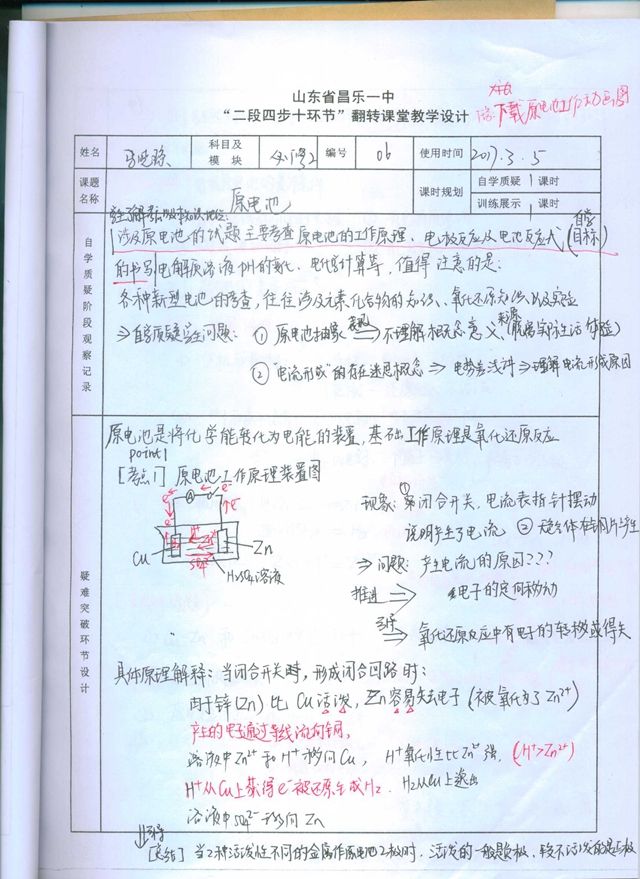 山东省昌乐一中
“二段四步十环节”翻转课堂教学设计
下载原电池工作动画图
姓名
科目及模块
必修2
编号
06
使用时间
2017.3.5
课题名称
原电池
课时规划
自学质疑 1 课时
训练展示 1 课时
自学质疑阶段观察记录
涉及原电池的试题主要考查原电池的工作原理、电极反应及电池反应式(自学目标)
的书写、电解质溶液pH的变化、电荷计算等,值得注意的是:
各种新型电池的考查,往往涉及元素化合物的知识、氧化还原知识以及实验
⇒自学质疑学生问题: ① 原电池抽象 ⇒ 不理解概念意义
② “电流形成”的存在迷思概念 ⇒ ⇒理解电流形成原因
疑难突破环节设计
原电池是将化学能转化为电能的装置,基础工作原理是氧化还原反应
point1
[考点1] 原电池工作原理装置图
A
e⁻
Cu
Zn
H₂SO₄溶液
现象:① 闭合开关,电流表指针摆动
说明产生了电流 ②
⇒ 问题: 产生电流的原因???
推进 ⇒ 电子的定向移动
⇒ 氧化还原反应中有电子的转移或得失
具体原理解释:当闭合开关时,形成闭合回路时:
由于锌(Zn)比Cu活泼,Zn容易失去电子(被氧化为了Zn²⁺)
产生的电子通过导线流向铜,
溶液中Zn²⁺和H⁺移向Cu, H⁺氧化性比Zn²⁺强, (H⁺>Zn²⁺)
H⁺从Cu上获得e⁻被还原生成H₂. H₂从Cu上逸出
溶液中SO₄²⁻移向Zn
[总结] 当2种活泼性不同的金属作原电池2极时,活泼的一般是负极、较不活泼的是正极